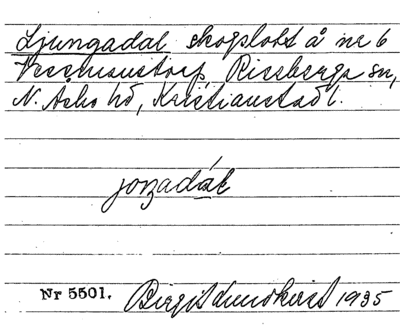 Ljungadal skogslott å nr 6
Össjöustorp, Riseberga sn,
N. Åsbo hd, Kristianstad l.
joŋadál
Nr 5501. Birgit Lundkvist 1935